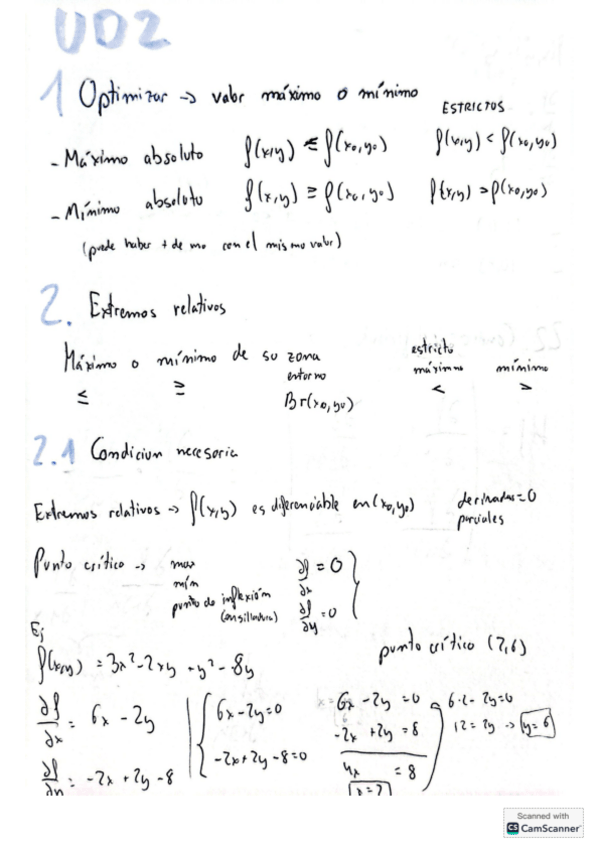 UD2
1 Optimizar → valor máximo o mínimo
ESTRICTOS
- Máximo absoluto f(x,y) ≤ f(x₀,y₀) f(x,y) < f(x₀,y₀)
- Mínimo absoluto f(x,y) ≥ f(x₀,y₀) f(x,y) > f(x₀,y₀)
(puede haber + de uno con el mismo valor)
2. Extremos relativos
Máximo o mínimo de su zona estricto
entorno máximo mínimo
≤ ≥ Br(x₀,y₀) < >
2.1 Condicion necesaria
Extremos relativos → f(x,y) es diferenciable en (x₀,y₀) derivadas = 0
parciales
Punto crítico → max ∂f/∂x = 0
mín
punto de inflexión ∂f/∂y = 0
(ensilladura)
Ej
punto crítico (2,6)
f(x,y) = 3x² - 2xy + y² - 8y
∂f/∂x = 6x - 2y 6x - 2y = 0 6x - 2y = 0 6·2 - 2y = 0
-2x + 2y = 8 12 = 2y → y = 6
∂f/∂y = -2x + 2y - 8 -2x + 2y - 8 = 0 4x = 8
x = 2
Scanned with
CS CamScanner